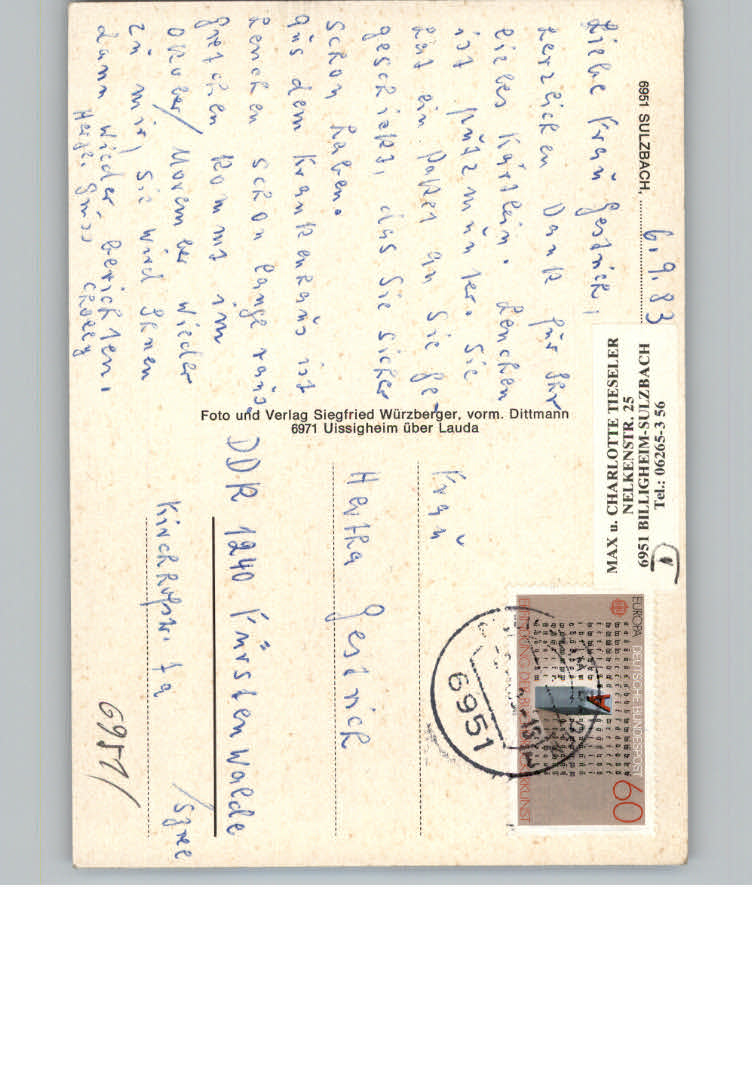 6951 SULZBACH, 6.9.83
Liebe Frau Gestrich,
herzlichen Dank für Ihr
liebes Kärtlein. Lenchen
ist putzmunter. Sie
hat ein Paket an Sie ge-
geschickt, das Sie sicher
schon haben.
Aus dem Krankenhaus ist
Lenchen schon lange raus.
Gretchen kommt im
Oktober/November wieder
zu mir, sie wird Ihnen
dann wieder berichten.
Herzl. Gruss
Foto und Verlag Siegfried Würzberger, vorm. Dittmann
6971 Uissigheim über Lauda
MAX u. CHARLOTTE TIESELER
NELKENSTR. 25
6951 BILLIGHEIM-SULZBACH
Tel.: 06265-3 56
EUROPA DEUTSCHE BUNDESPOST
60
6951
Frau
Hertha Gestrich
DDR 1240 Fürstenwalde
/Spree
Kirchhofstr. 1a
6951/